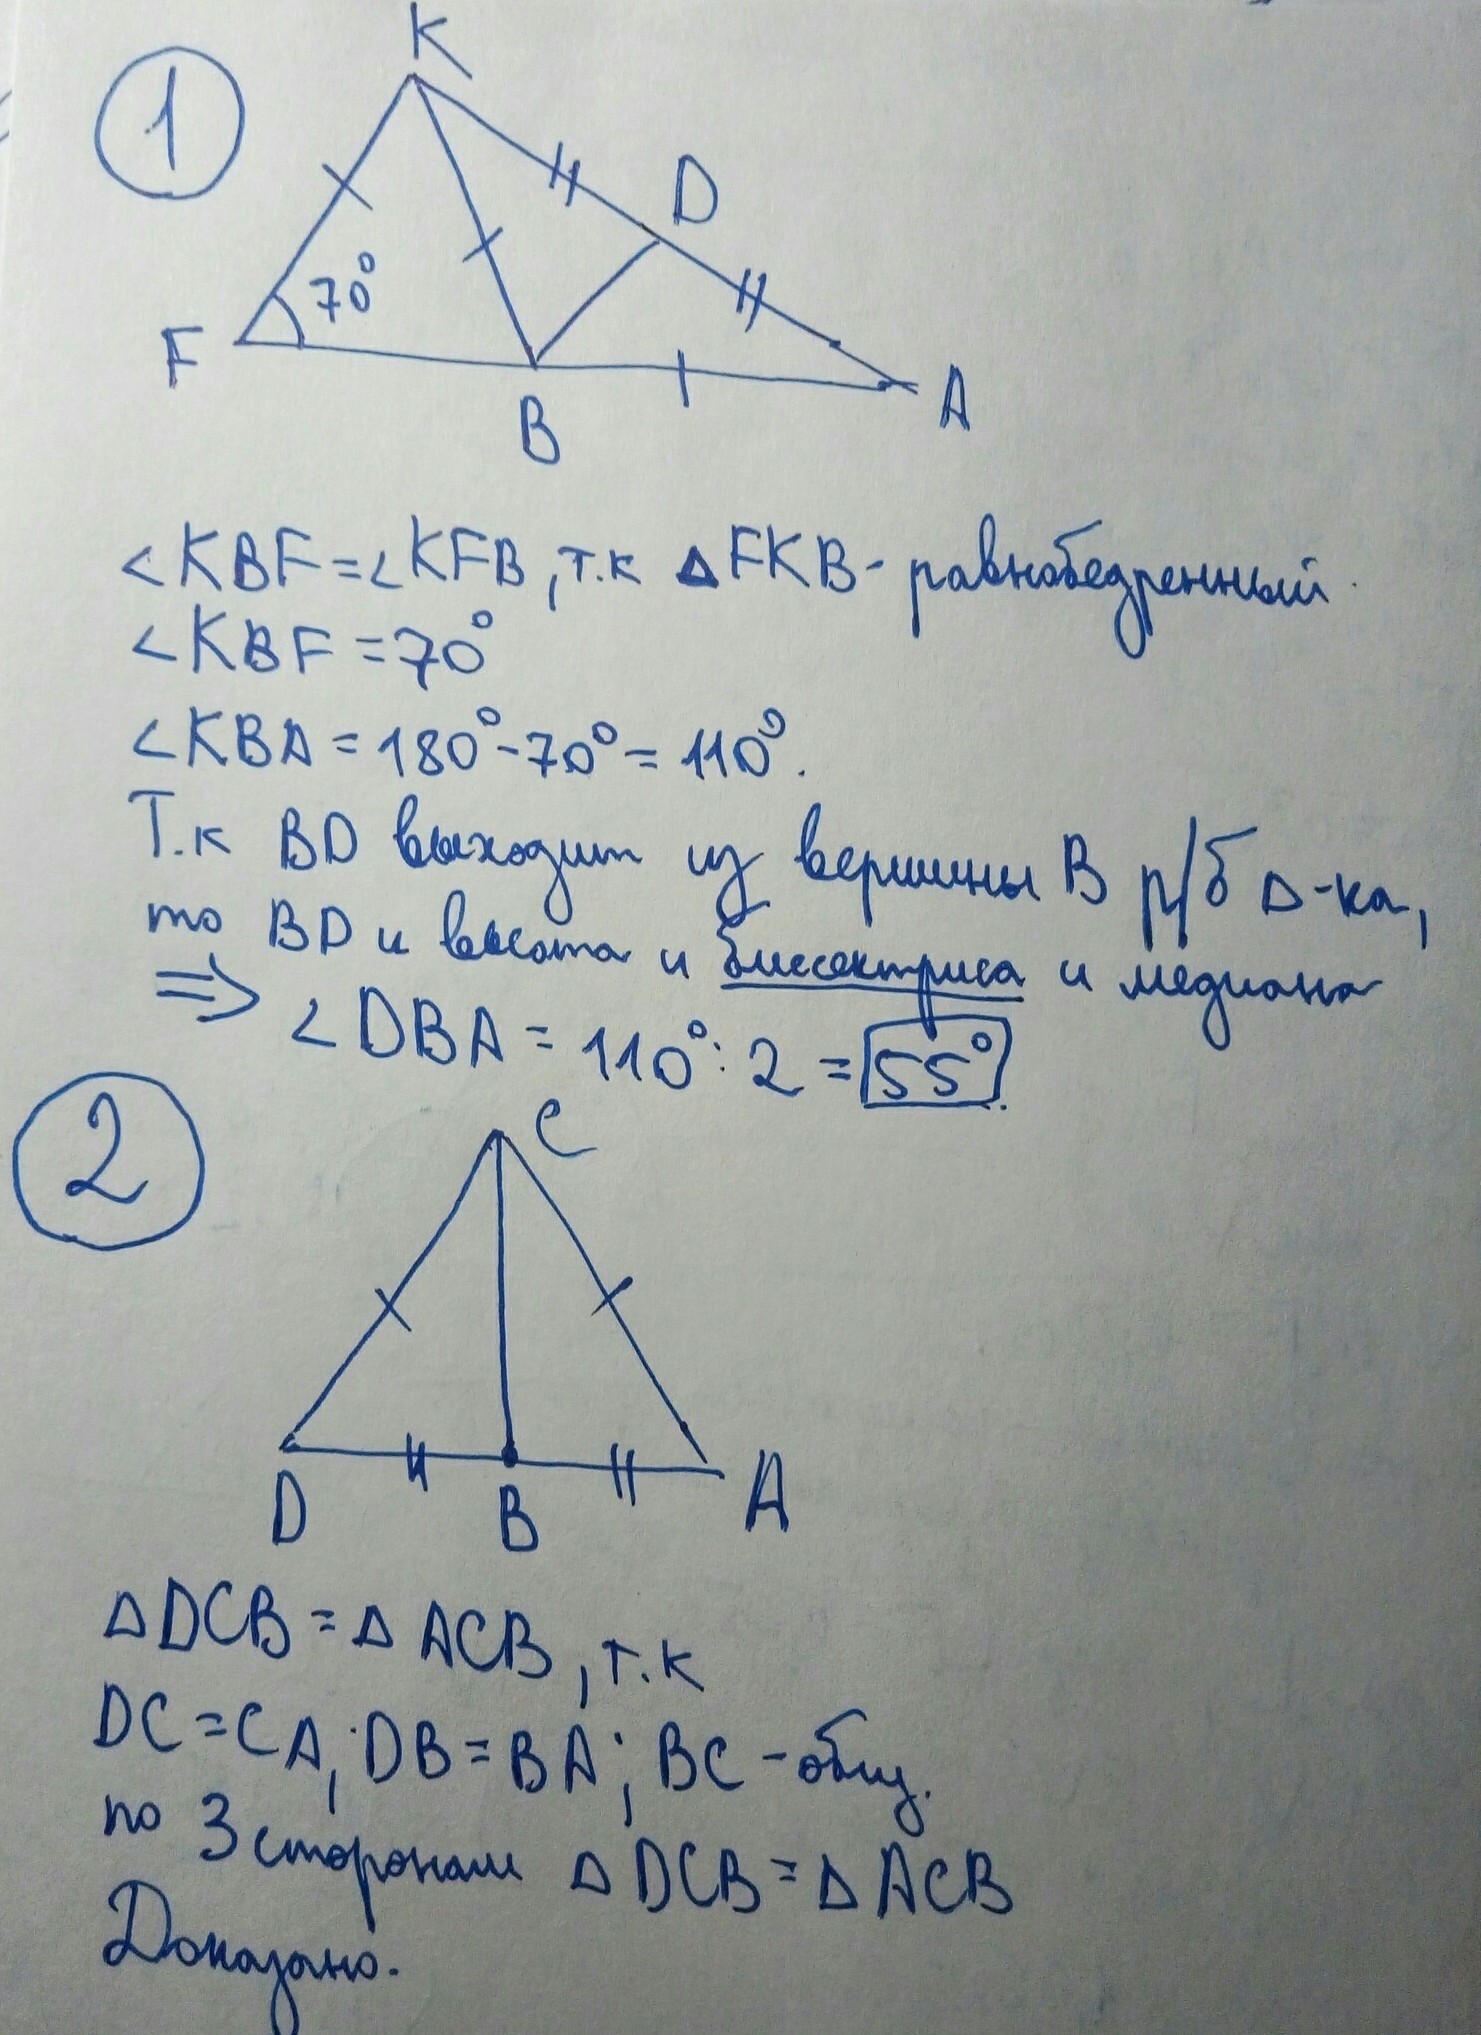 1
K
D
70°
F
B
A
<KBF=<KFB, т.к ΔFKB- равнобедренный.
<KBF=70°
<KBA=180°-70°=110°.
Т.к BD выходит из вершины B р/б Δ-ка,
то BD и высота и биссектриса и медиана
=> <DBA = 110°:2=55°.
2
C
D
B
A
ΔDCB=ΔACB, т.к
DC=CA; DB=BA; BC-общ.
по 3 сторонам ΔDCB=ΔACB
Доказано.